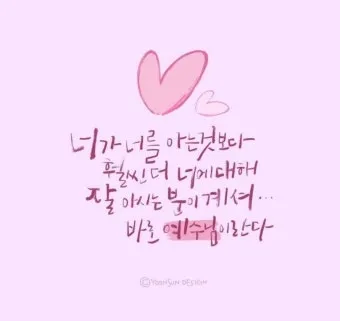 너가 너를 아는것보다
훨씬 더 너에대해
잘 아시는 분이 계셔...
바로 예수님이란다
©YOONSUN DESIGN